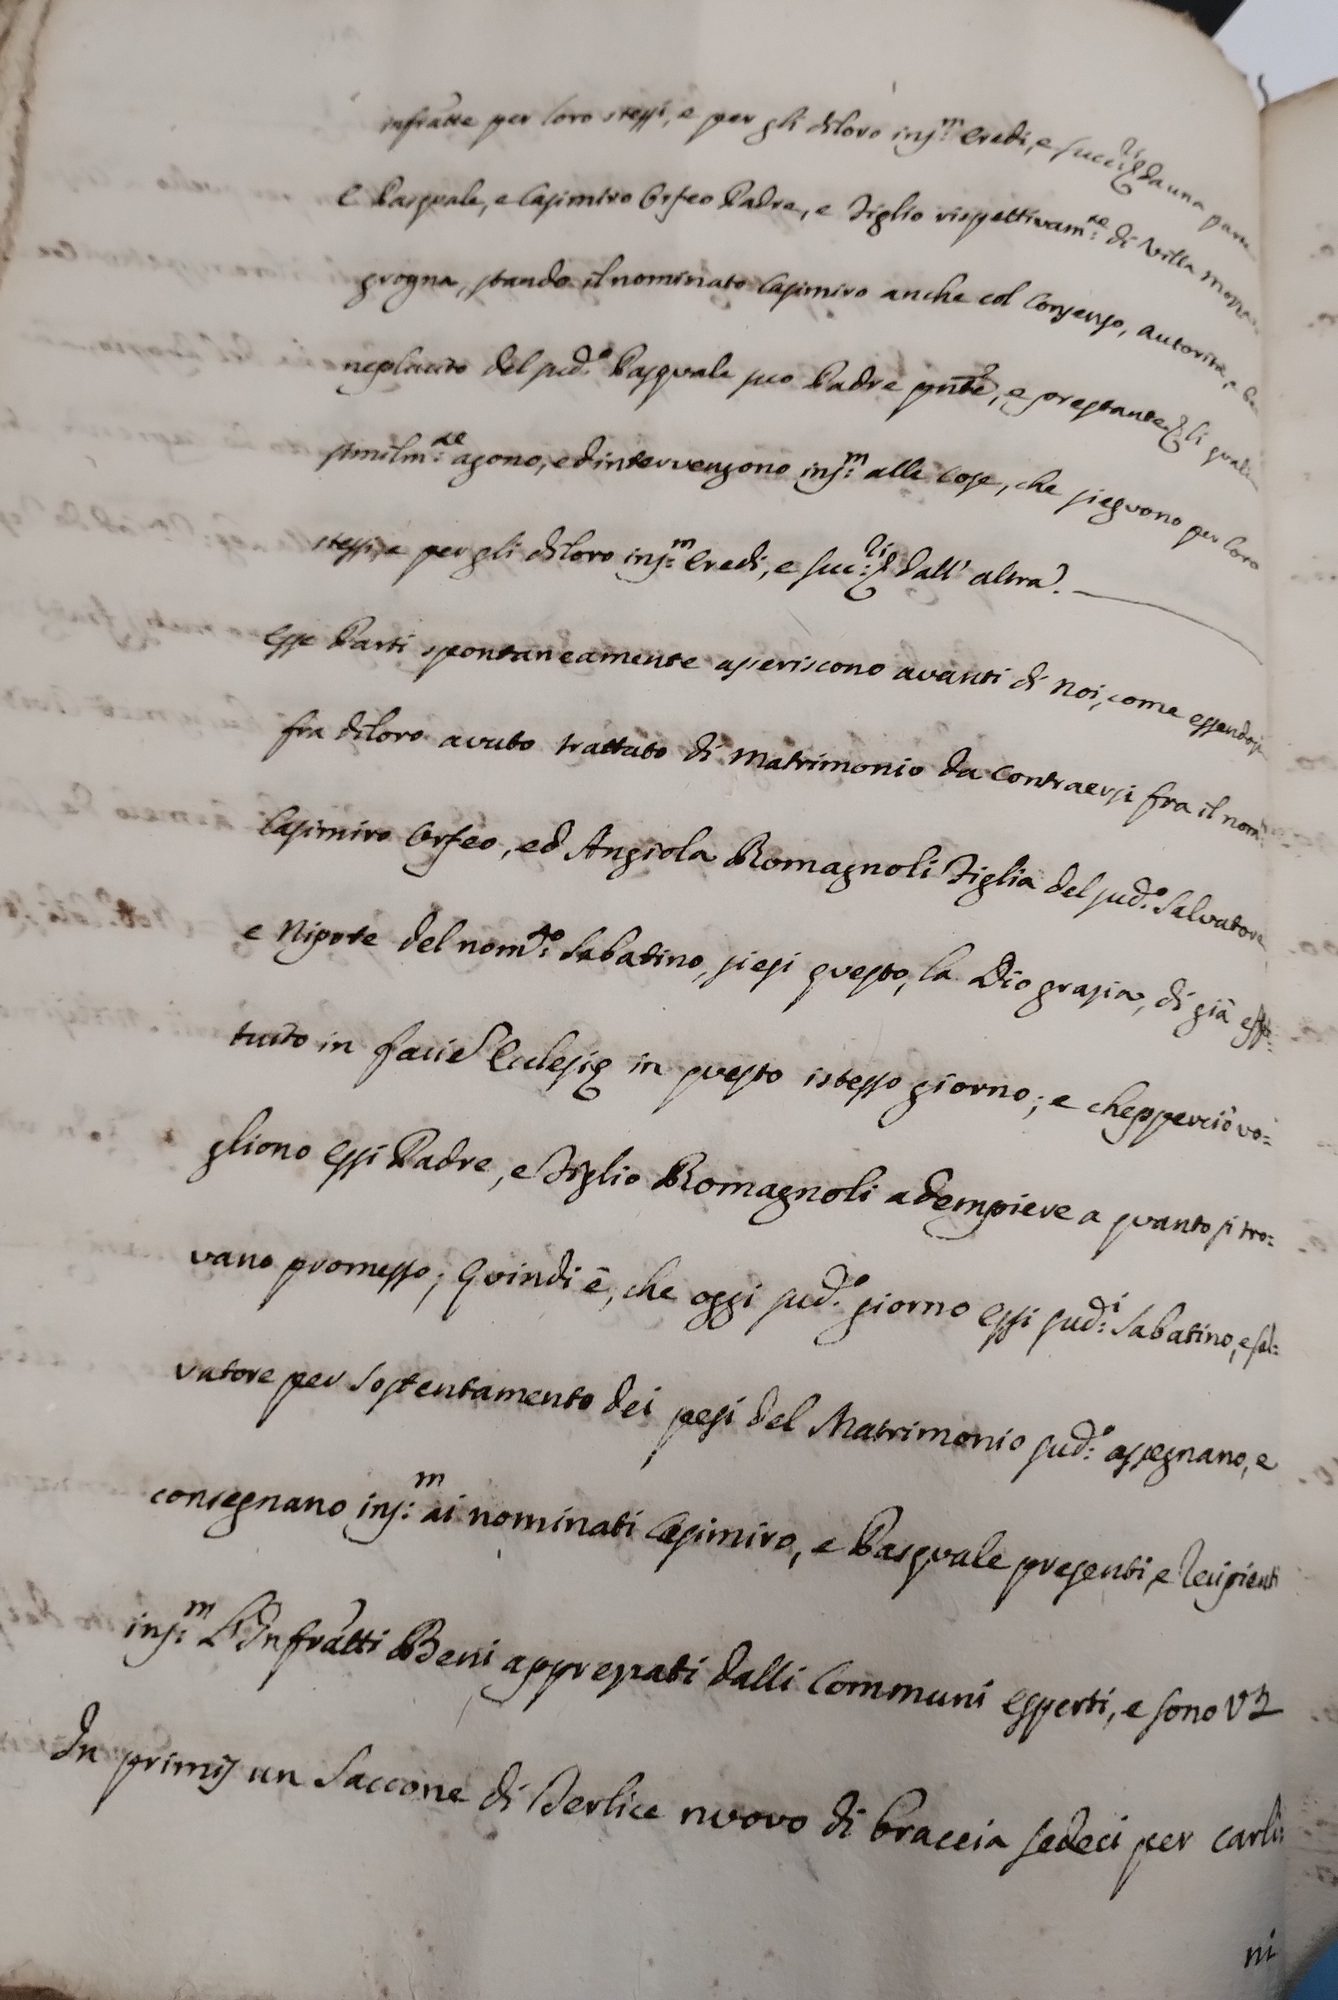 infratte per loro stessi, e per gli diloro ins:m Eredi, e succ:ri da una parte
E Pasquale, e Casimiro Orfeo Padre, e Figlio rispettivam:te di Villa Mosca
grogna, stando il nominato Casimiro anche col consenso, autorità, e be
neplacito del sud:o Pasquale suo Padre pnte, e prestante, li quali
similm:te agono, ed intervengono ins:m alle cose, che sieguono per loro
stessi, e per gli diloro ins:m Eredi, e suc:ri dall' altra.
Esse Parti spontaneamente asseriscono avanti di Noi, come essendosi
fra diloro avuto trattato di Matrimonio da contraersi fra il nom:
Casimiro Orfeo, ed Angiola Romagnoli Figlia del sud:o Salvatore
e Nipote del nom:to Sabatino, siesi questo, la Dio grasia, di già effet:
tuato in facie Ecclesię in questo istesso giorno; e chepperciò vo=
gliono essi Padre, e Figlio Romagnoli adempiere a quanto si tro=
vano promesso; Quindi è, che oggi sud:o giorno essi sud:i Sabatino, e Sal=
vatore per sostentamento dei pesi del Matrimonio sud:o assegnano, e
consegnano ins:m ai nominati Casimiro, e Pasquale presenti, e recipienti
ins:m L'Infratti Beni appresati dalli Communi esperti, e sono VZ
In primis un Saccone di Terlice nuovo di braccia sedeci per carli:
ni